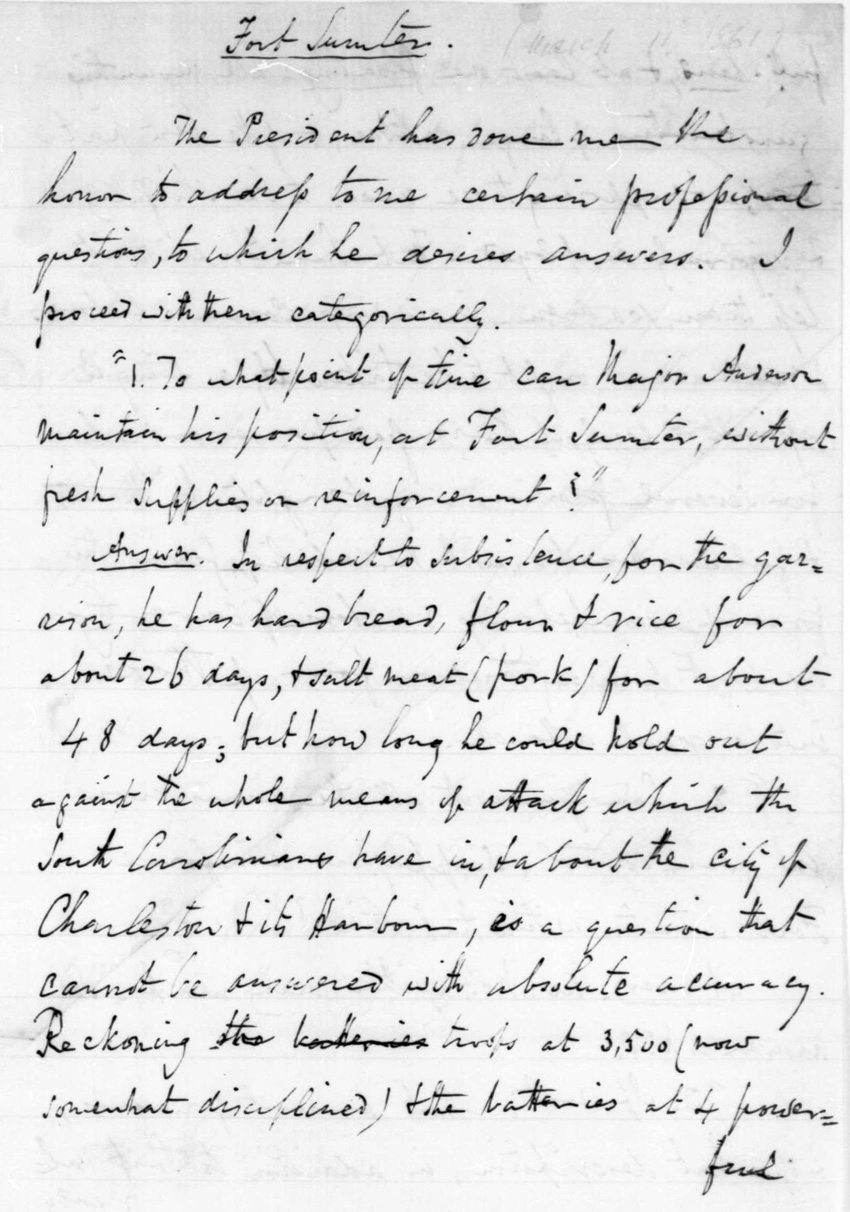 Fort Sumter. (March 11, 1861)
The President has done me the
honor to address to me certain professional
questions, to which he desires answers. I
proceed with them categorically.
"1. To what point of time can Major Anderson
maintain his position, at Fort Sumter, without
fresh supplies or reinforcement?"
Answer. In respect to subsistence, for the gar=
rison, he has hard bread, flour & rice for
about 26 days, & salt meat (pork) for about
48 days; but how long he could hold out
against the whole means of attack which the
South Carolinians have in, & about the city of
Charleston & its Harbour, is a question that
cannot be answered with absolute accuracy.
Reckoning the batteries troops at 3,500 (now
somewhat disciplined) & the batteries at 4 power=
ful